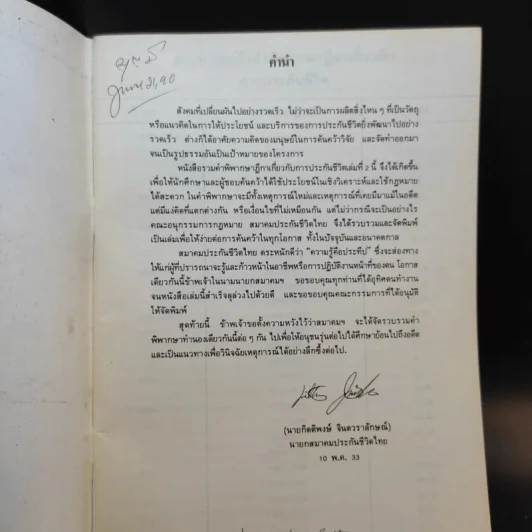 คำนำ
สังคมที่เปลี่ยนผันไปอย่างรวดเร็ว ไม่ว่าจะเป็นการผลิตสิ่งไหน ๆ ที่เป็นวัตถุ
หรือแนวคิดในการให้ประโยชน์ และบริการของการประกันชีวิตยิ่งพัฒนาไปอย่าง
รวดเร็ว ต่างก็ได้อาศัยความคิดของมนุษย์ในการค้นคว้าวิจัย และจัดทำออกมา
จนเป็นรูปธรรมอันเป็นเป้าหมายของโครงการ
หนังสือรวมคำพิพากษาฎีกาเกี่ยวกับการประกันชีวิตเล่มที่ 2 นี้ จึงได้เกิดขึ้น
เพื่อให้นักศึกษาและผู้ชอบค้นคว้าได้ใช้ประโยชน์ในเชิงวิเคราะห์และใช้กฎหมาย
ได้สะดวก ในคำพิพากษาจะมีทั้งเหตุการณ์ใหม่และเหตุการณ์ที่เคยมีมาแม้ในอดีต
แต่มีแง่คิดที่แตกต่างกัน หรือเงื่อนไขที่ไม่เหมือนกัน แต่ไม่ว่ากรณีจะเป็นอย่างไร
คณะอนุกรรมการกฎหมาย สมาคมประกันชีวิตไทย จึงได้รวบรวมและจัดพิมพ์
เป็นเล่มเพื่อให้ง่ายต่อการค้นคว้าในทุกโอกาส ทั้งในปัจจุบันและอนาคตกาล
สมาคมประกันชีวิตไทย ตระหนักดีว่า "ความรู้คือประทีป" ซึ่งจะส่องทาง
ให้แก่ผู้ที่ปรารถนาจะรู้และก้าวหน้าในอาชีพหรือการปฏิบัติงานหน้าที่ของตน โอกาส
เดียวกันนี้ข้าพเจ้าในนามนายกสมาคมฯ ขอขอบคุณทุกท่านที่ได้อุทิศตนทำงาน
จนหนังสือเล่มนี้สำเร็จลุล่วงไปด้วยดี และขอขอบคุณคณะกรรมการที่ได้อนุมัติ
ให้จัดพิมพ์
สุดท้ายนี้ ข้าพเจ้าขอตั้งความหวังไว้ว่าสมาคมฯ จะได้รวบรวมคำ
พิพากษาทำนองเดียวกันนี้ต่อ ๆ กัน ไปเพื่อให้อนุชนรุ่นต่อไปได้ศึกษาย้อนไปถึงอดีต
และเป็นแนวทางเพื่อวินิจฉัยเหตุการณ์ได้อย่างลึกซึ้งต่อไป.
(นายกิตติพงษ์ จินดวราลักษณ์)
นายกสมาคมประกันชีวิตไทย
10 พ.ค. 33